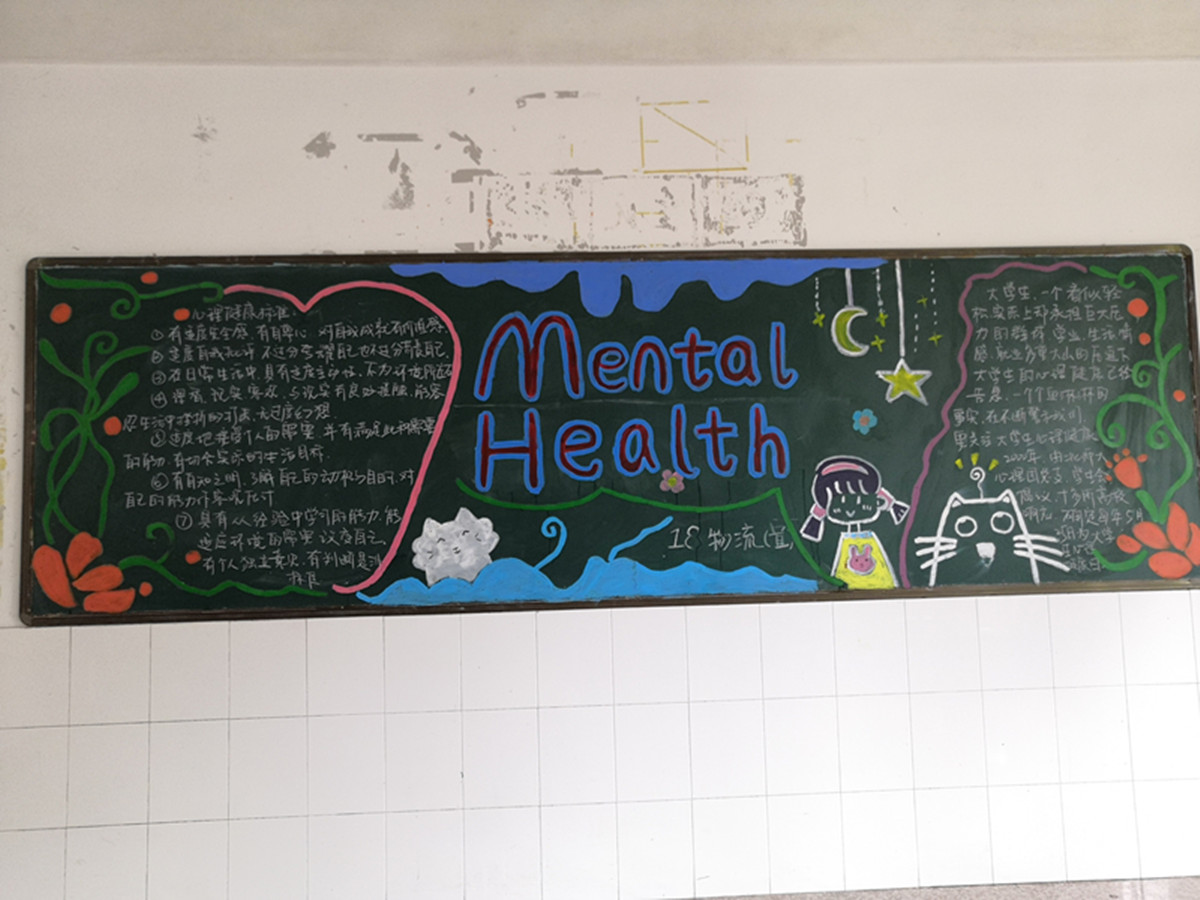 心理健康标准
①有适度安全感,有自尊心,对自我成就有价值感.
②适度自我批评,不过分夸耀自己也不过分苛责自己.
③在日常生活中,具有适度主动性,不为环境所左右
④理智,现实,客观,与现实有良好接触,能容
忍生活中挫折的打击,无过度幻想.
⑤适度地接受个人的需要,并有满足此种需要
的能力,有切合实际的生活目标.
⑥有自知之明,了解自己的动机与目的,对
自己的能力作客观估计
⑦具有从经验中学习的能力,能
适应环境的需要改变自己.
有个人独立意见,有判断是非
标准
Mental
Health
18物流(宣)
大学生,一个看似轻
松实质上却承担巨大压
力的群体,学业,生活,情
感,就业多重大山的压迫下
大学生的心理健康已经
告急.一个个血淋淋的
事实,在不断警示我们
大学生心理健康
2000年,由北师大
心理团总支,学生会
倡议,十多所高校
响应,确定每年5月
为大学